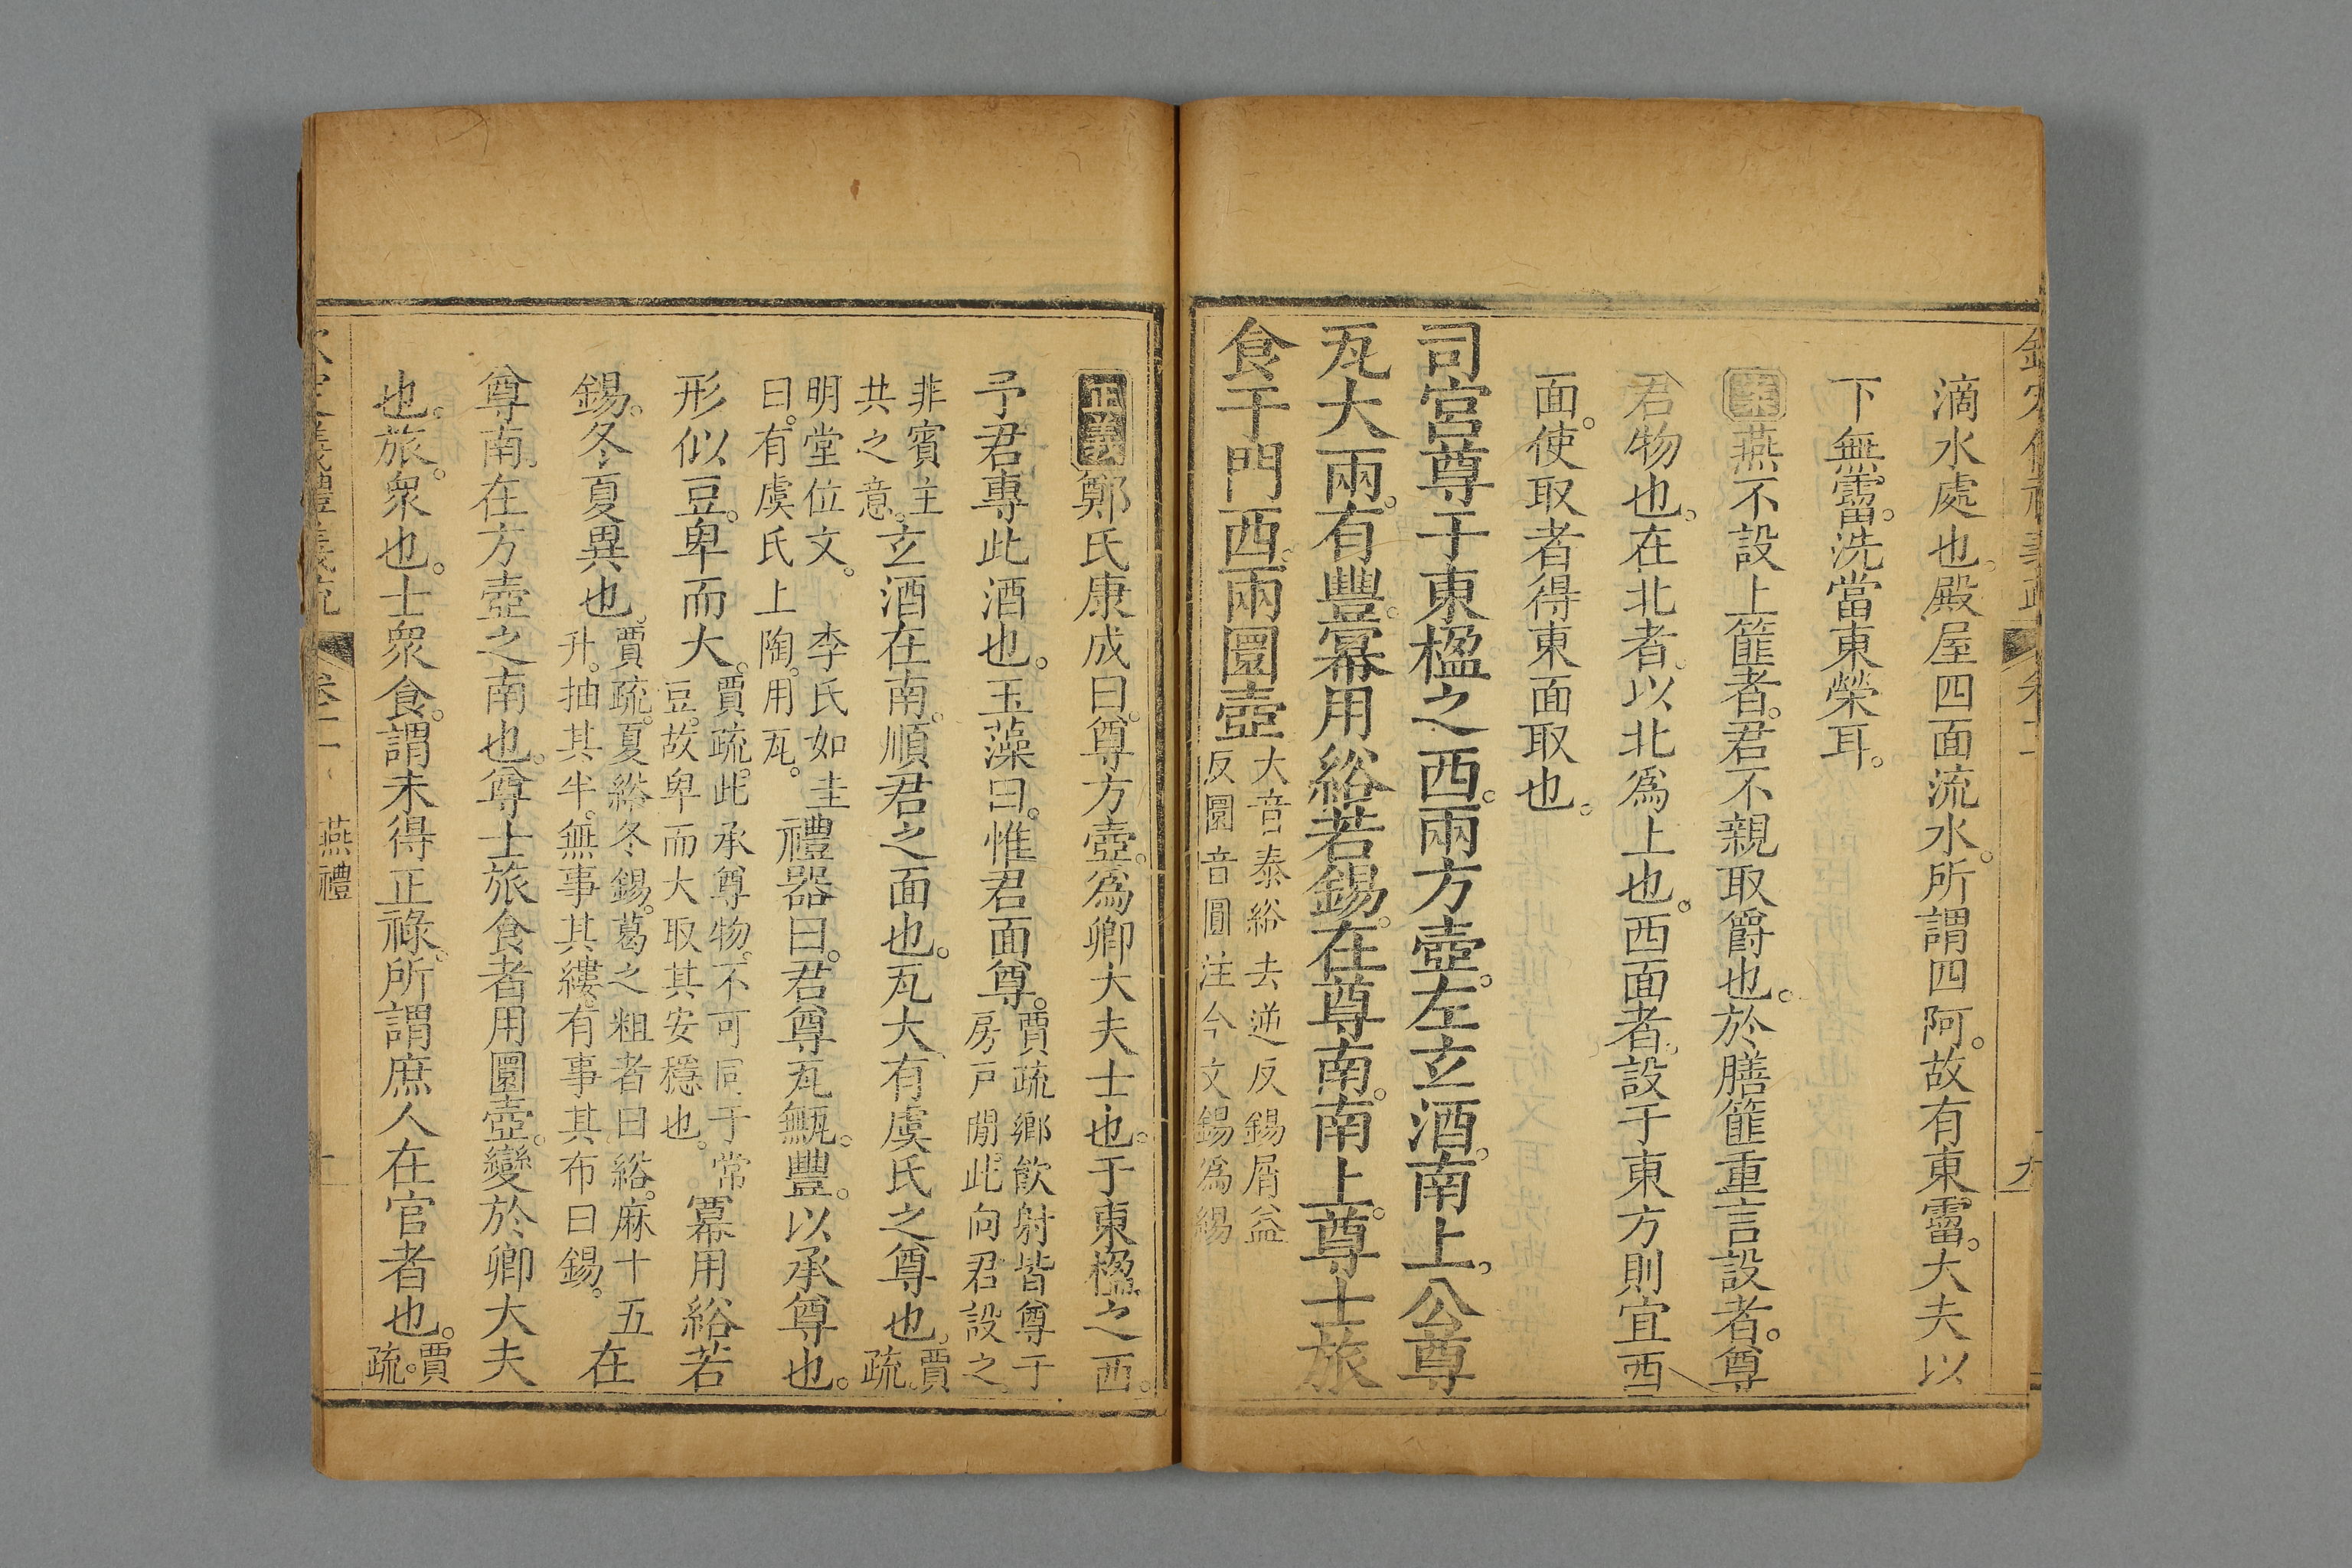 滴水處也。殿屋四面流水。所謂四阿。故有東霤。大夫以
下無霤。洗當東榮耳。
案燕不設上篚者。君不親取爵也。於膳篚重言設者。尊
君物也。在北者。以北爲上也。西面者。設于東方則宜西
面。使取者得東面取也。
司宮尊于東楹之西。兩方壺。左玄酒。南上。公尊
瓦大兩。有豐。冪用綌若錫。在尊南。南上。尊士旅
食于門西。兩圜壺
大音泰綌去逆反錫屑益
反圜音圓注今文錫爲緆
正義鄭氏康成曰。尊方壺。爲卿大夫士也。于東楹之西。
予君專此酒也。玉藻曰。惟君面尊。
賈疏鄉飮射皆尊于
房戸閒。此向君設之。
非賓主
共之意。
玄酒在南。順君之面也。瓦大。有虞氏之尊也。
賈
疏。
明堂位文。 李氏如圭
曰。有虞氏上陶。用瓦。
禮器曰。君尊瓦甒。豐。以承尊也。
形似豆。卑而大。
賈疏。此承尊物。不可同于常
豆。故卑而大取其安穩也。
冪用綌若
錫。冬夏異也。
賈疏。夏綌冬錫。葛之粗者曰綌。麻十五
升。抽其半。無事其縷。有事其布曰錫。
在
尊南。在方壺之南也。尊士旅食者用圜壺。變於卿大夫
也。旅。衆也。士衆食。謂未得正祿。所謂庶人在官者也。
賈
疏。
卷十一 燕禮